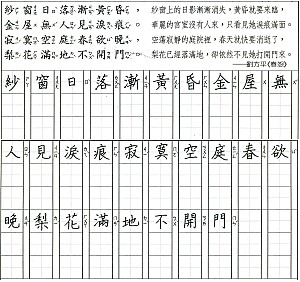 紗窗日落漸黃昏，
金屋無人見淚痕。
寂寞空庭春欲晚，
梨花滿地不開門。
紗窗上的日影漸漸消失，黃昏就要來臨，
華麗的宮室沒有人來，只看見她淚痕滿面。
空蕩寂靜的庭院裡，春天就快要消逝了，
梨花已經落滿地，卻依然不見她打開門來。
——劉方平《春怨》
紗窗日落漸黃昏金屋無
人見淚痕寂寞空庭春欲
晚梨花滿地不開門